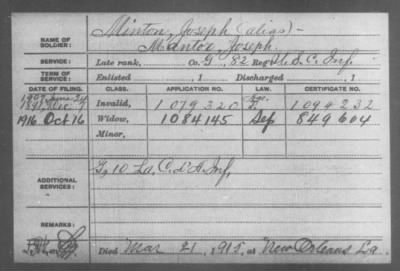 NAME OF SOLDIER: Minton, Joseph (alias)-
Mantor, Joseph
SERVICE: Late rank, Co. G, 82 Reg't U.S.C. Inf.
TERM OF SERVICE: Enlisted , 1 Discharged , 1
DATE OF FILING. CLASS. APPLICATION NO. CERTIFICATE NO.
1891, Dec. Invalid, 1079320 1094232
1916 Oct 16 Widow, 1084145 Def 849604
Minor,
ADDITIONAL SERVICES: G, 10 La. C. D'A. Inf.
REMARKS:
Died Mar 21, 1915, at New Orleans La.